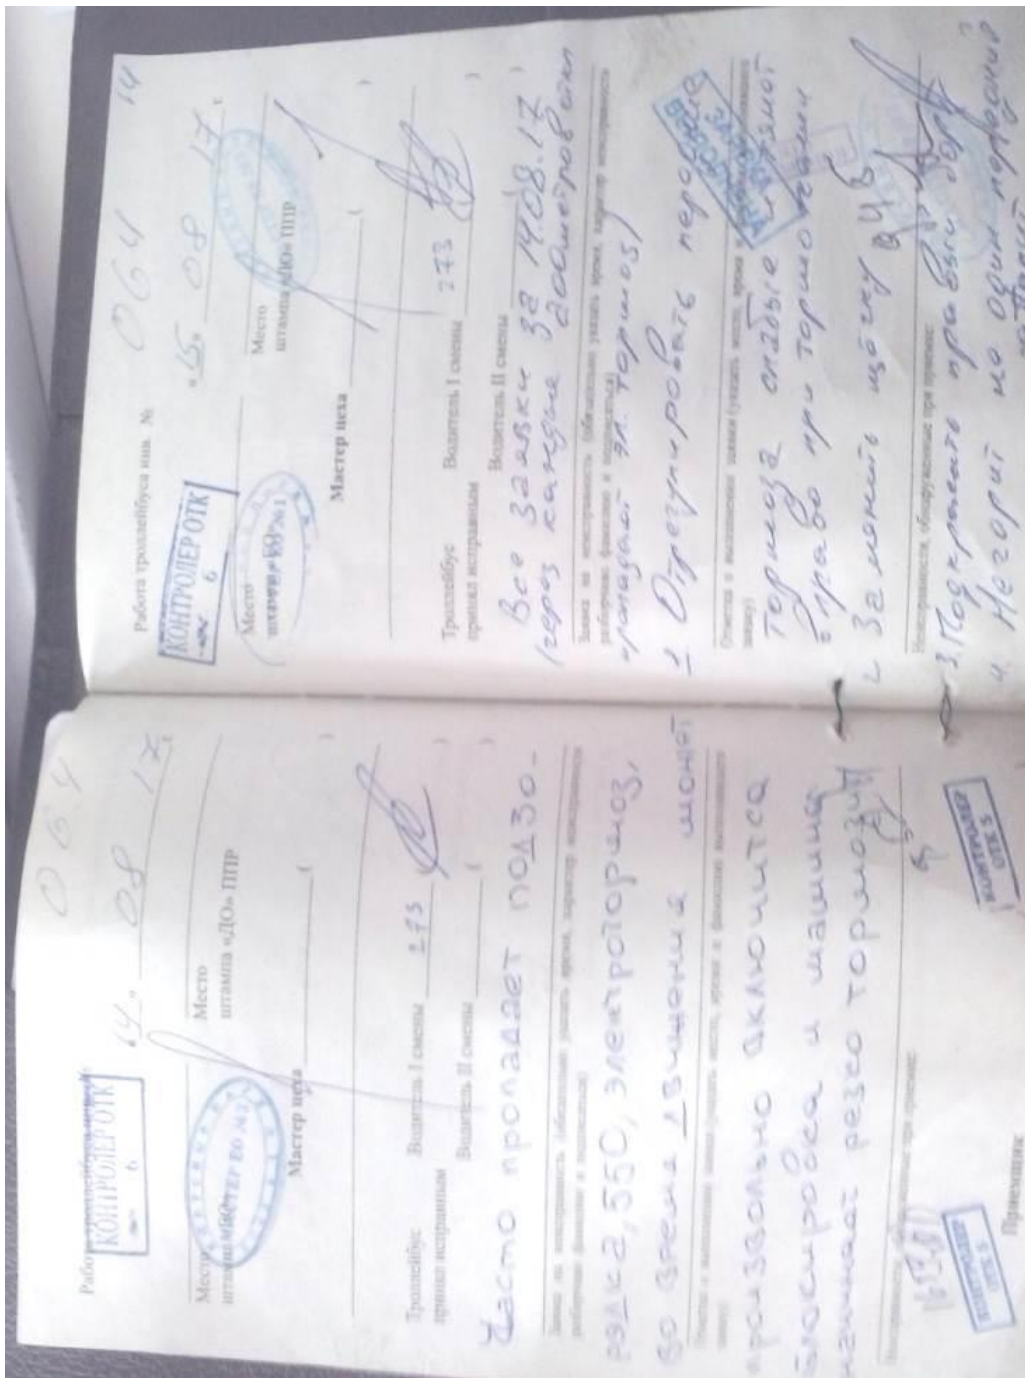 064
Работа троллейбуса
КОНТРОЛЕР ОТК
6
14 08 17 г.
Место
МАСТЕР ЕО №2
Место
штампа «ДО» ППР
Мастер цеха
Троллейбус
принял исправным
Водитель I смены 273
Водитель II смены
Часто пропадает подзо-
Заявка на неисправность (обязательно указать время, характер неисправности
разборчиво фамилию и подписаться)
рядка, 550, электротормоз,
во время движения может
произвольно включится
блокировка и машина
начинает резко тормозить
Неисправности, обнаруженные при приеме:
КОНТРОЛЕР
ОТК 5
КОНТРОЛЕР
ОТК 5
Приемщик
14
Работа троллейбуса инв. № 064
КОНТРОЛЕР ОТК
6
«15» 08 17 г.
Место
Место
штампа «ДО» ППР
Мастер цеха
Троллейбус
принял исправным
Водитель I смены 273
Водитель II смены
Все заявки за 14.08.17
(через каждые 200 метров
Заявка на неисправность (обязательно указать время, характер неисправности
разборчиво фамилию и подписаться)
пропадает эл. тормоз)
1 Отрегулировать передние
Отметка о выполнении заявки (указать место, время и фамилию выполнившего
заявку)
тормоза слабые и тянет
вправо при торможении
2 Заменить щёточку
Неисправности, обнаруженные при приеме:
3. Подкрасить правый борт
4. Не горит ни один передний